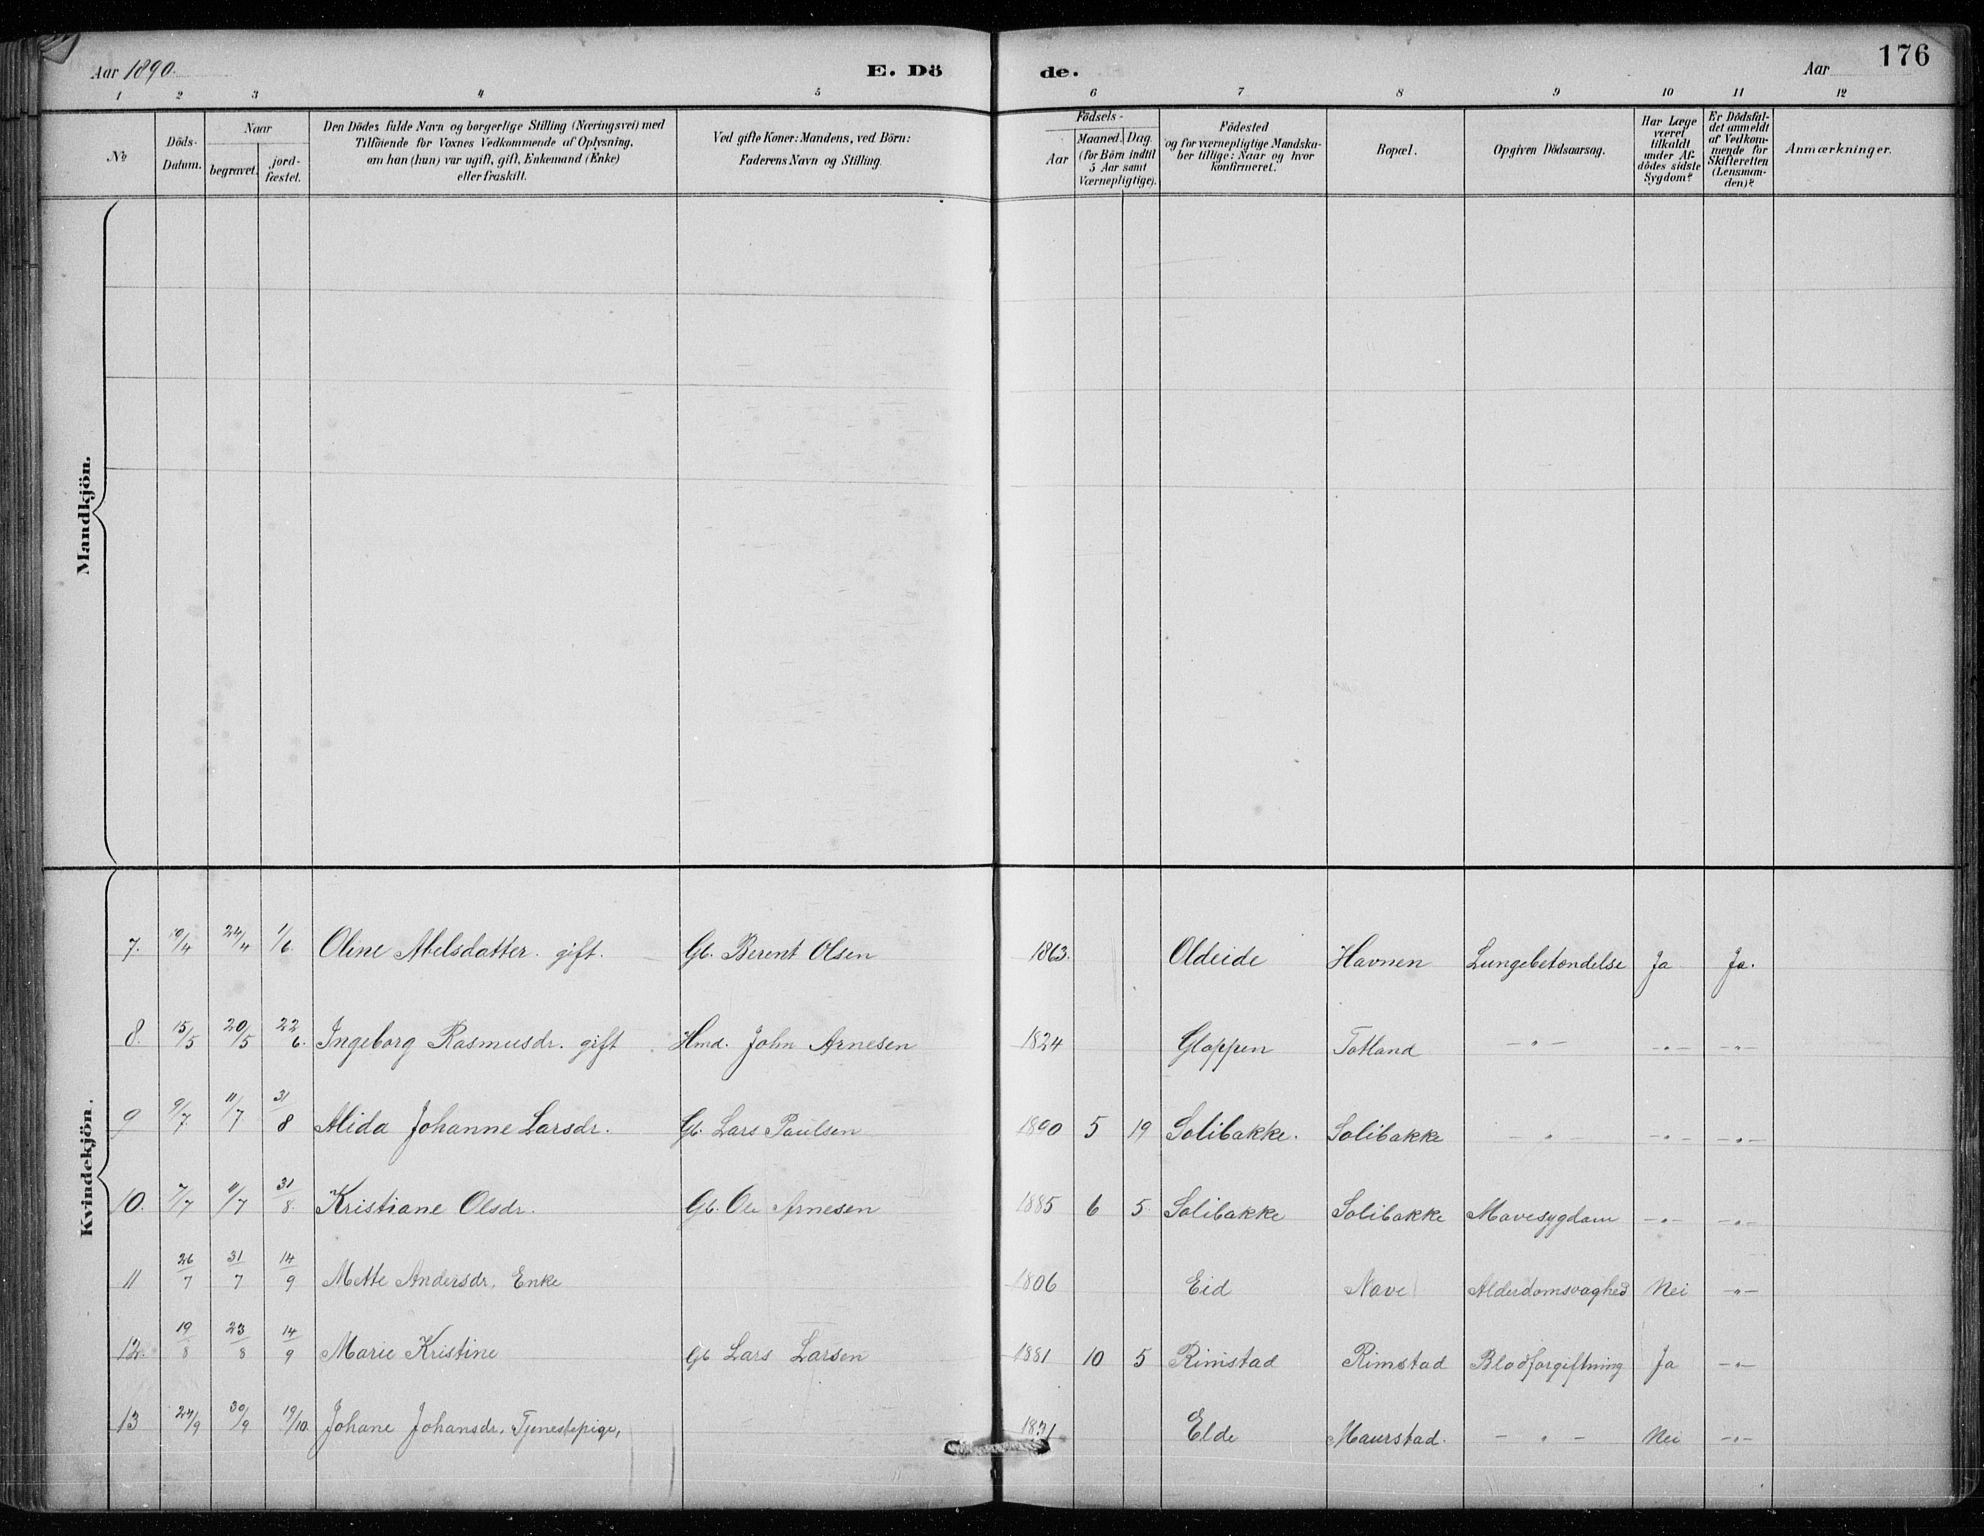 Aar 1890. E. Dö de. Aar 176
1 2 3 4 5 6 7 8 9 10 11 12
No
Döds-Datum.
Naar
begravet.
jord-fæstet.
Den Dödes fulde Navn og borgerlige Stilling (Næringsvei) med
Tilföiende for Voxnes Vedkommende af Oplysning,
om han (hun) var ugift, gift, Enkemand (Enke)
eller fraskilt.
Ved gifte Koner: Mandens, ved Börn:
Faderens Navn og Stilling.
Födsels-
Aar
Maaned. Dag.
(for Börn indtil
5 Aar samt
Værnepligtige).
Födested
og for værnepligtige Mandska-
ber tillige: Naar og hvor
konfirmeret.
Bopæl.
Opgiven Dödsaarsag.
Har Læge
været
tilkaldt
under Af-
dödes sidste
Sygdom?
Er Dödsfal-
det anmeldt
af Vedkom-
mende for
Skifteretten
(Lensman-
den)?
Anmærkninger.
Mandkjön.
Kvindekjön.
7. 10/4 24/4 1/6. Oline Abelsdatter. gift. Gb. Berent Olsen 1863. Oldeide Havnen Lungebetændelse Ja Ja.
8. 15/5 20/5 22/6. Ingeborg Rasmusdr. gift Hmd. John Arnesen 1824 Gloppen Totland -"- -"- -"-
9 9/7 11/7 31/8 Alida Johanne Larsdr. Gb. Lars Paulsen 1890 5 19 Solibakke. Solibakke -"- -"- -"-
10. 7/7 11/7 31/8. Kristiane Olsdr. Gb. Ole Arnesen 1885 6 5 Solibakke Solibakke Mavesygdom -"- -"-
11 26/7 31/7 14/9 Mette Andersdr. Enke 1806 Eid Nave Alderdomsvaghed Nei -"-
12. 19/8 23/8 14/9 Marie Kristine Gb Lars Larsen 1881 10 5 Rimstad Rimstad Blodforgiftning Ja -"-
13 24/9 30/9 19/10. Johane Johansdr. Tjenestepige, Elde Maurstad. -"- Nei -"-